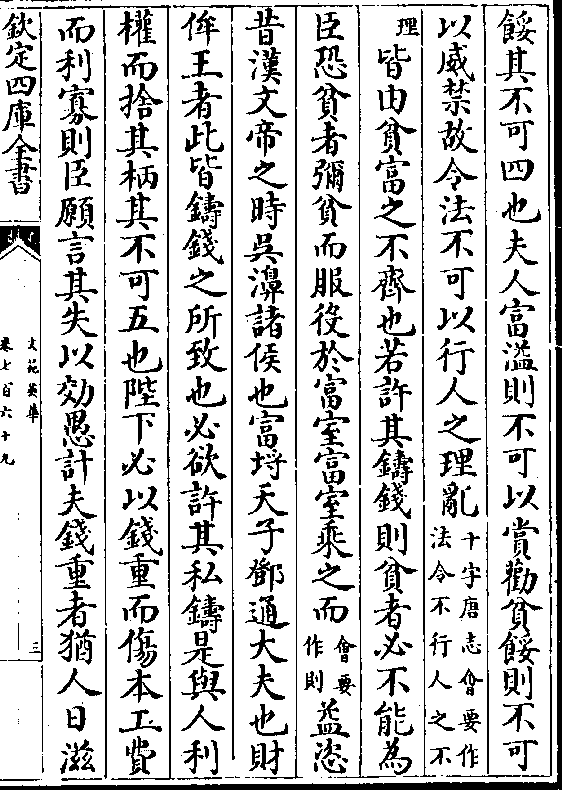 餒其不可四也夫人富溢則不可以賞勸貧餒則不可
以威禁故令法不可以行人之理亂十字唐志會要作法令不行人之不
理皆由貧富之不齊也若許其鑄錢則貧者必不能為
臣恐貧者彌貧而服役於富室富室乘之而會要作則益恣
昔漢文帝之時吳濞諸侯也富埒天子鄧通大夫也財
侔王者此皆鑄錢之所致也必欲許其私鑄是與人利
權而捨其柄其不可五也陛下必以錢重而傷本工費
而利寡則臣願言其失以効愚計夫錢重者猶人日滋
欽定四庫全書
文苑英華
卷七百六十九
三